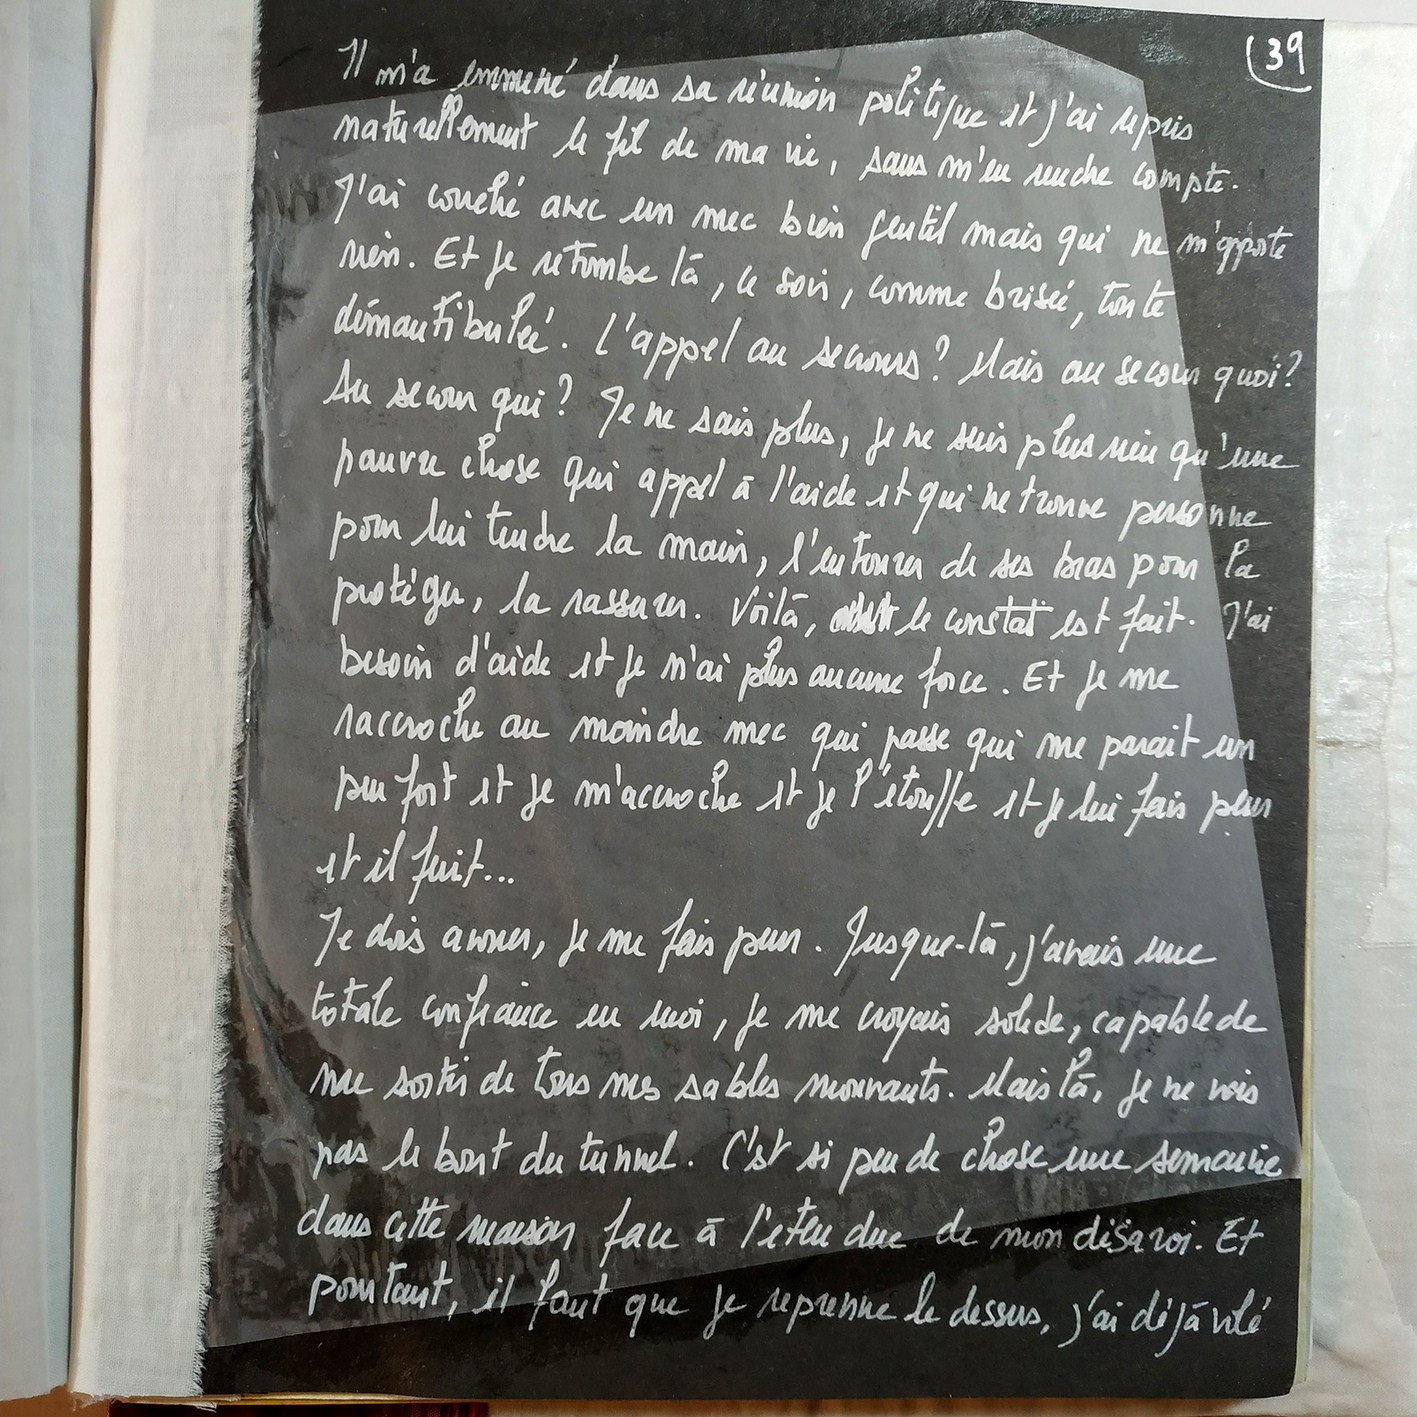 39
Il m'a emmené dans sa réunion politique et j'ai repris
naturellement le fil de ma vie, sans m'en rendre compte.
J'ai couché avec un mec bien gentil mais qui ne m'apporte
rien. Et je retombe là, ce soir, comme brisée, toute
démantibulée. L'appel au secours ? Mais au secour quoi ?
Au secour qui ? Je ne sais plus, je ne suis plus rien qu'une
pauvre chose qui appel à l'aide et qui ne trouve personne
pour lui tendre la main, l'entourer de ses bras pour la
protéger, la rassurer. Voilà, le constat est fait. J'ai
besoin d'aide et je n'ai plus aucune force. Et je me
raccroche au moindre mec qui passe qui me parait un
peu fort et je m'accroche et je l'étouffe et je lui fais peur
et il fuit...
Je dois avouer, je me fais peur. Jusque-là, j'avais une
totale confiance en moi, je me croyais solide, capable de
me sortir de tous mes sables mouvants. Mais là, je ne vois
pas le bout du tunnel. C'est si peu de chose une semaine
dans cette maison face à l'étendue de mon désaroi. Et
pourtant, il faut que je reprenne le dessus, j'ai déjà volé